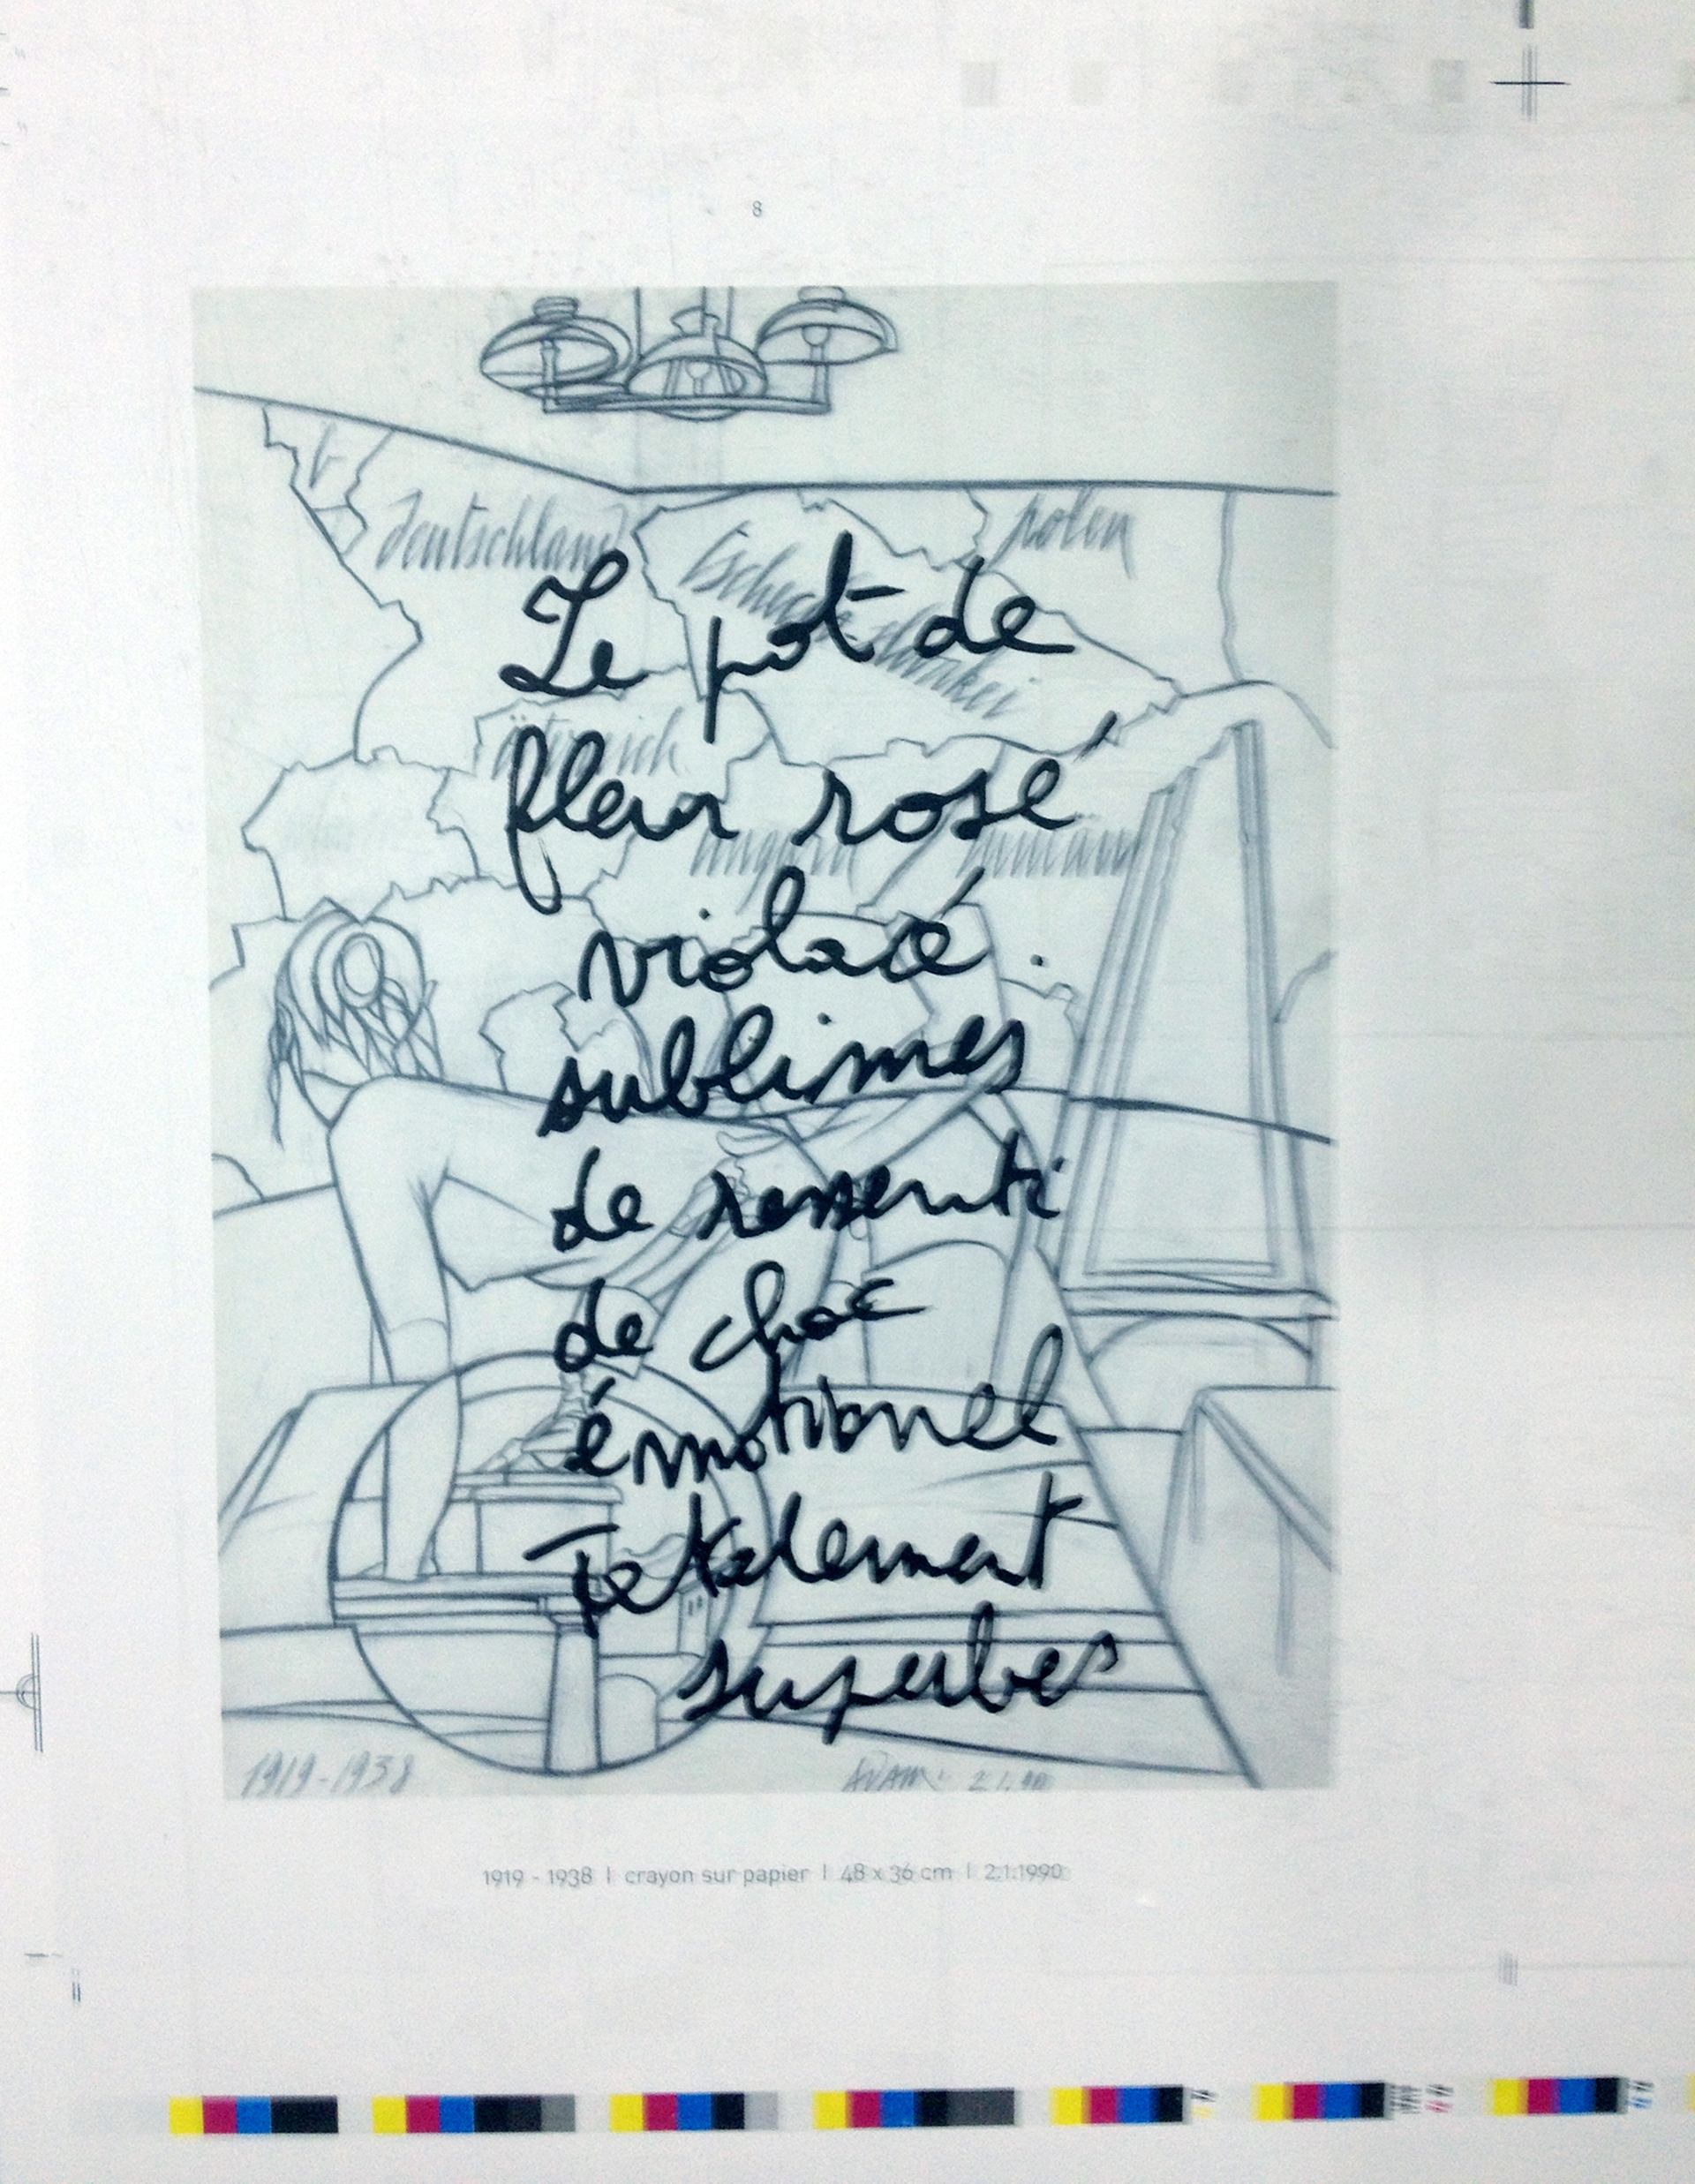 8
Deutschland
polen
Le pot de
fleur rosé
violacé.
sublimes
de ressenti
de choc
émotionel
Totalement
superbes
1919-1938
ADAMI 2.1.90
1919 - 1938 | crayon sur papier | 48 x 36 cm | 2.1.1990